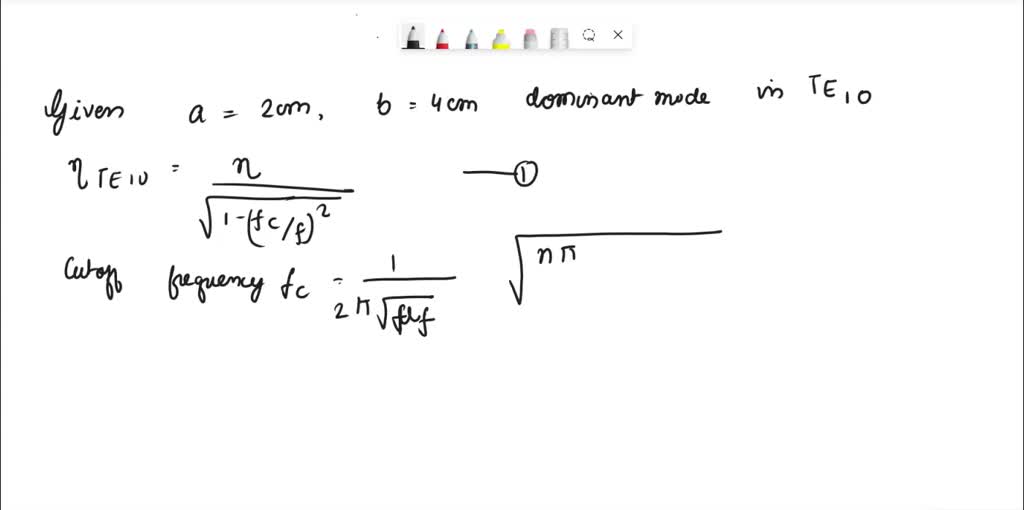 Given a = 2cm, b = 4cm dominant mode is TE10
η TE10 = η / √(1-(fc/f)²) —①
Cutoff frequency fc = 1 / 2π√ √nπ